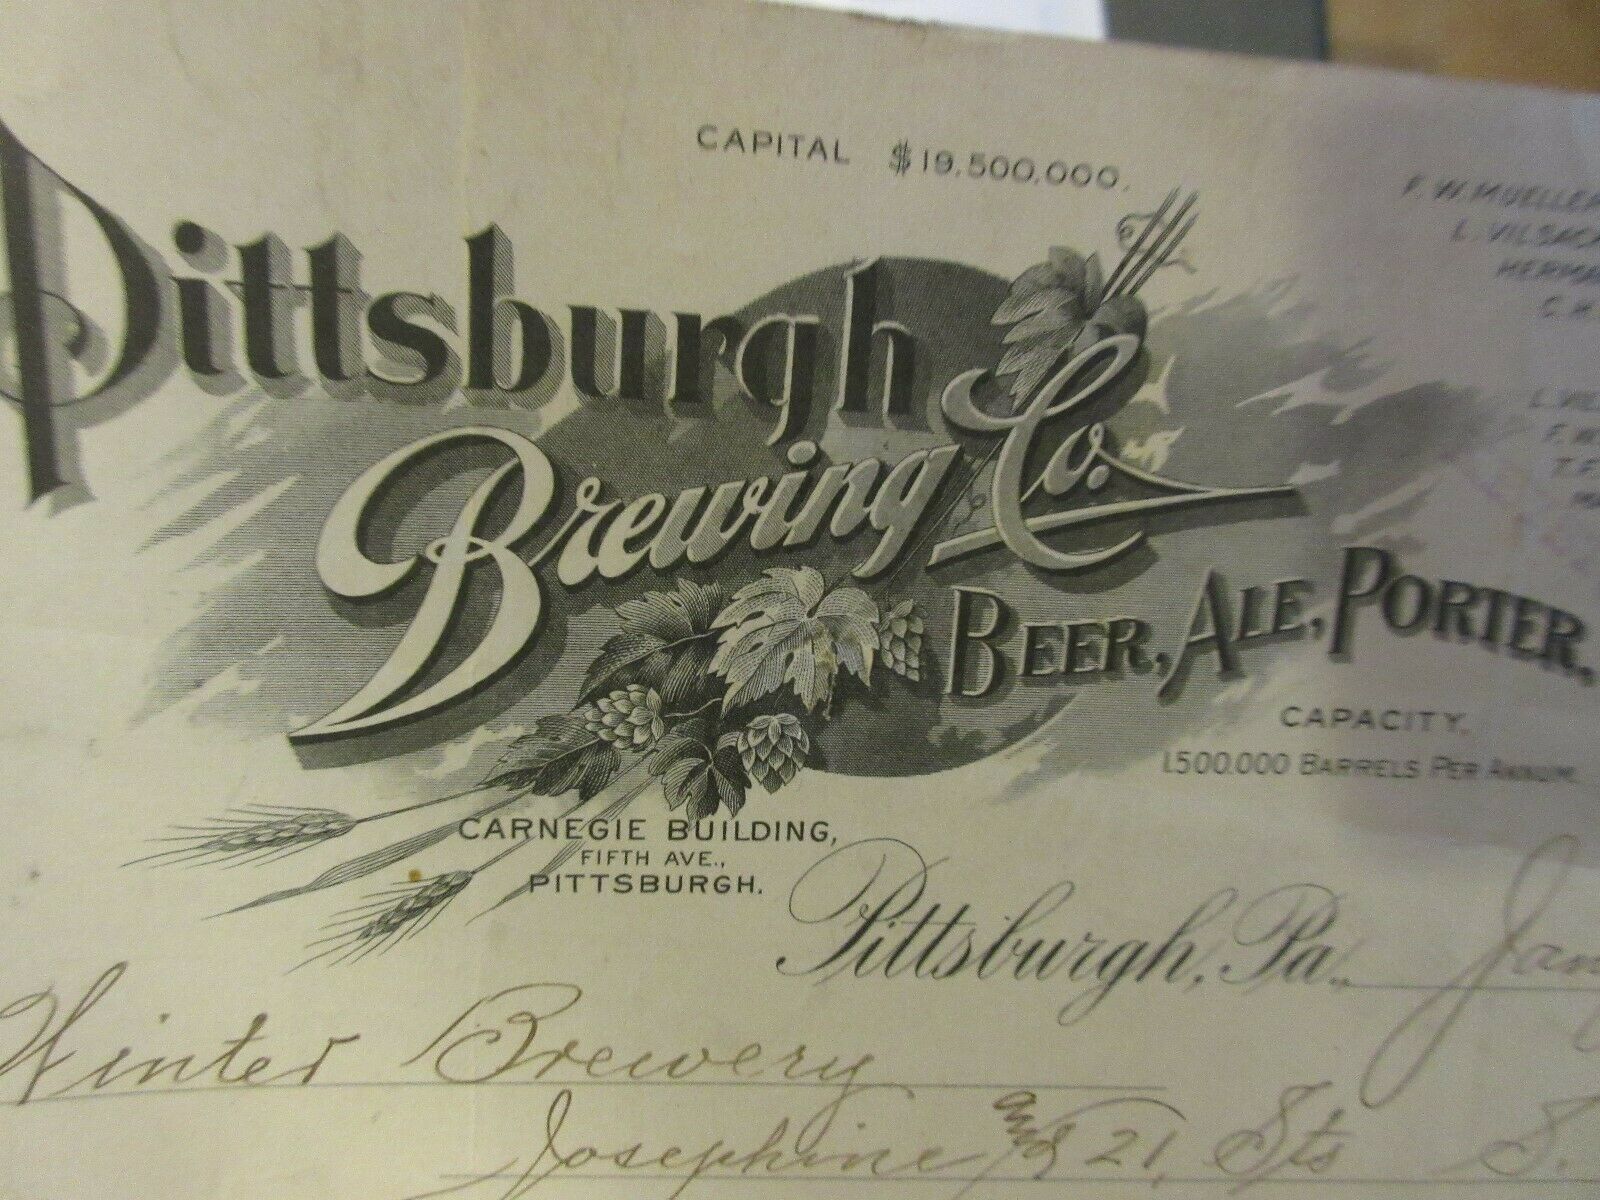 CAPITAL $19,500,000.
F. W. MUELLER
L. VILSACK
Pittsburgh
Brewing Co.
BEER, ALE, PORTER,
CAPACITY,
1,500,000 BARRELS PER ANNUM.
CARNEGIE BUILDING,
FIFTH AVE.,
PITTSBURGH.
Pittsburgh, Pa. Jan
Winter Brewery
Josephine and 21, Sts S.